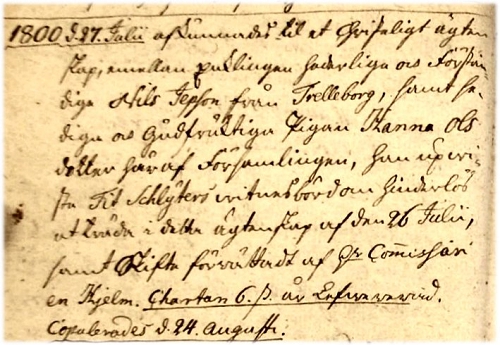 1800 d. 27. Julii afkunnades til et Christeligt ägten
skap, emellan ynklingen hederlige os Förstån-
dige Nils Jepson från Trelleborg, samt he-
diga os Gudfruktiga Pigan Hanna Ols
dotter här af Församlingen, han upwi-
ste Hr Schlyters witnesbörd om hinderlös
at träda i detta ägtenskap af den 26 Julii,
samt Skifte förrättadt af Hr Commissari
en Hjelm. Chartan 6 ß. är
Copulerades d. 24. Augusti.